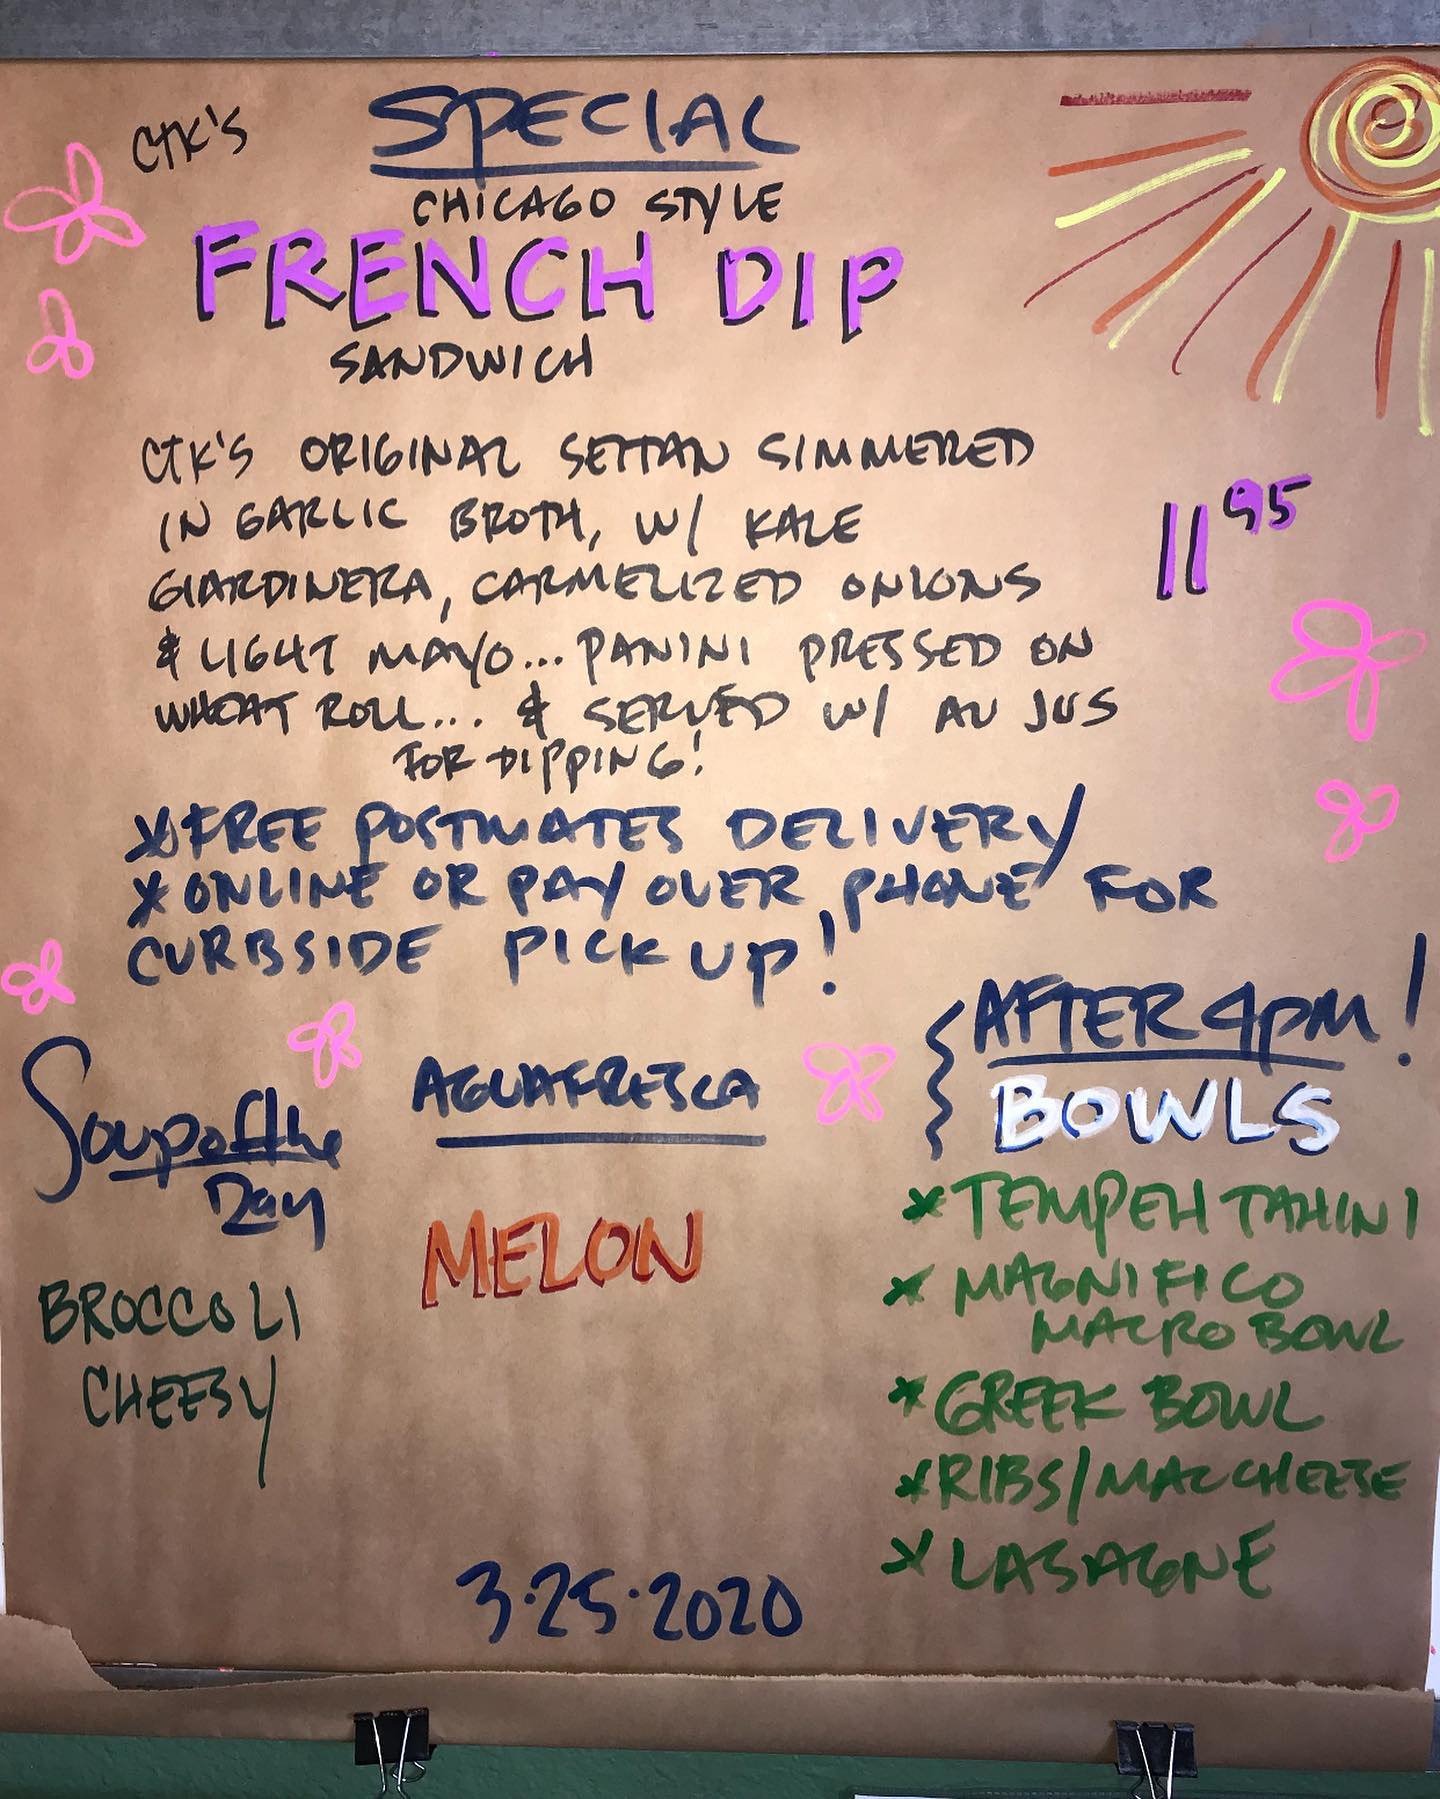 CTK'S
SPECIAL
CHICAGO STYLE
FRENCH DIP
SANDWICH
CTK'S ORIGINAL SEITAN SIMMERED
IN GARLIC BROTH, W/ KALE
GIARDINERA, CARMELIZED ONIONS
& LIGHT MAYO... PANINI PRESSED ON
WHEAT ROLL... & SERVED W/ AU JUS
FOR DIPPING!
11 95
*FREE POSTMATES DELIVERY
*ONLINE OR PAY OVER PHONE FOR
CURBSIDE PICK UP!
Soup of the
Day
BROCCOLI
CHEESY
AGUAFRESCA
MELON
AFTER 4PM!
BOWLS
*TEMPEH TAHINI
*MAGNIFICO
MACRO BOWL
*GREEK BOWL
*RIBS/MAC CHEESE
*LASAGNE
3·25·2020